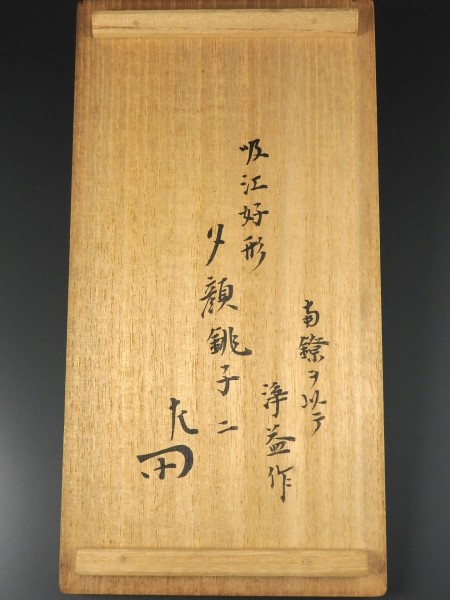 南鐐ヲ以テ
淨益作
吸江好形
夕顔銚子 二
左